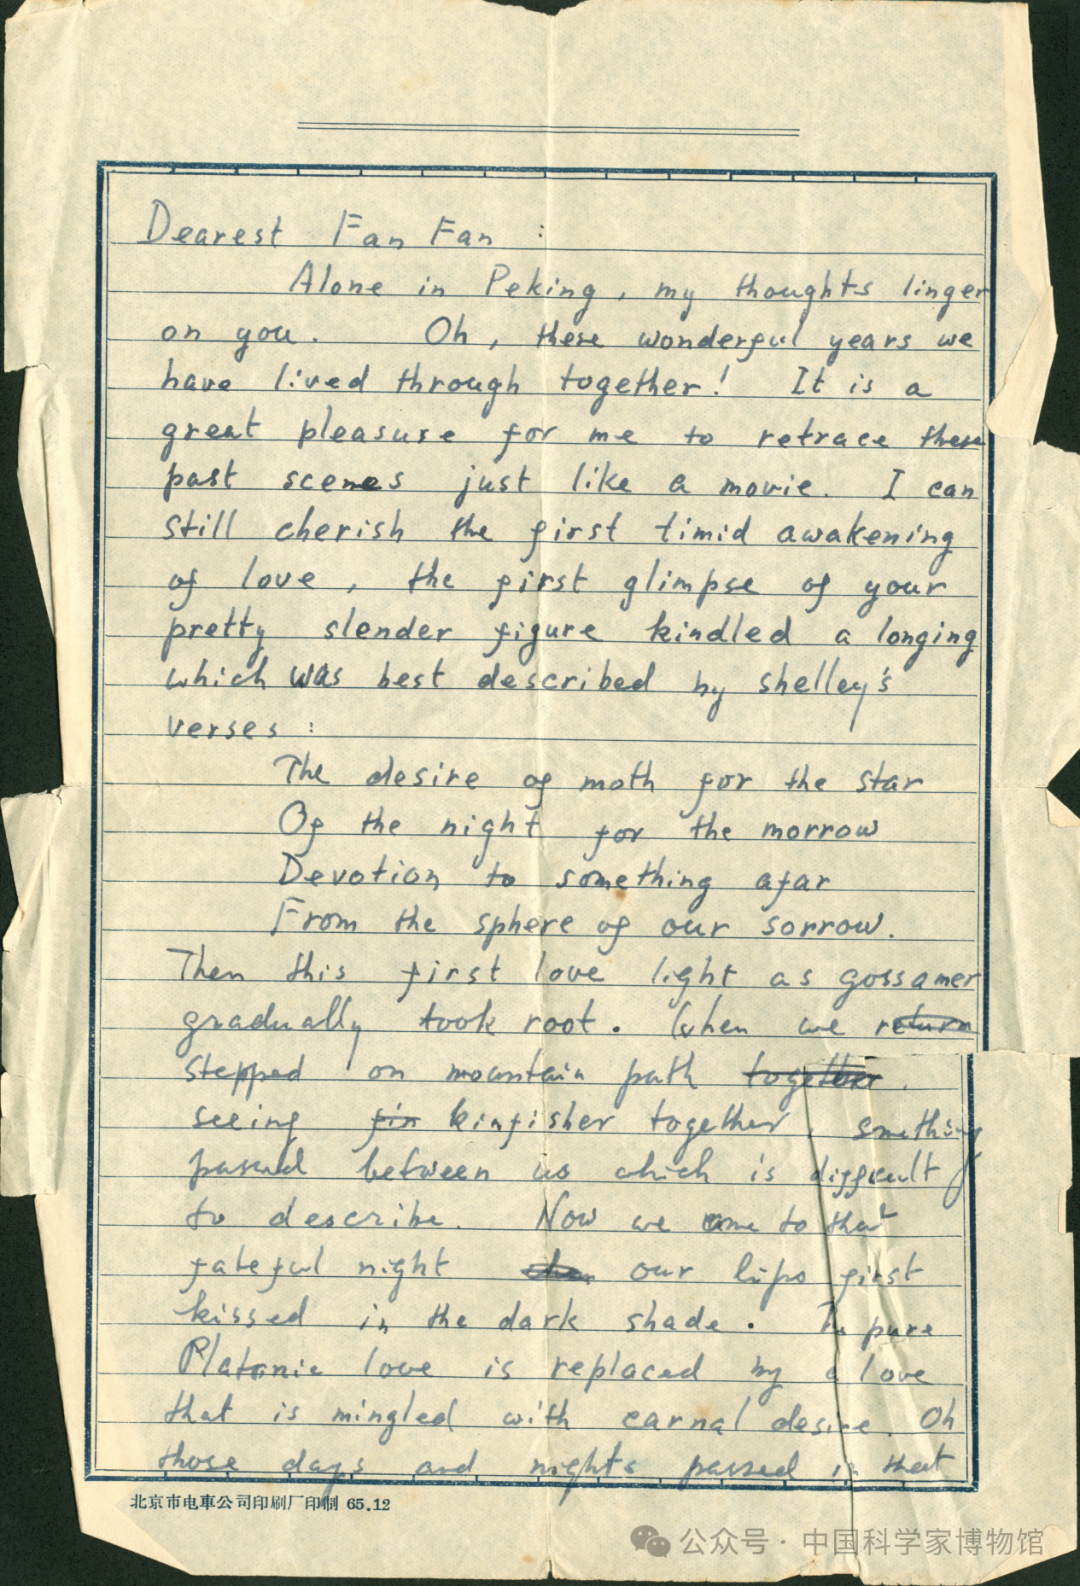 Dearest Fan Fan :
Alone in Peking, my thoughts linger
on you. Oh, these wonderful years we
have lived through together! It is a
great pleasure for me to retrace these
past scenes just like a movie. I can
still cherish the first timid awakening
of love, the first glimpse of your
pretty slender figure kindled a longing
which was best described by shelley's
verses :
The desire of moth for the star
Of the night for the morrow
Devotion to something afar
From the sphere of our sorrow.
Then this first love light as gossamer
gradually took root. When we return
stepped on mountain path together.
seeing fin kinfisher together, something
passed between us which is difficult
to describe. Now we come to that
fateful night when our lips first
kissed in the dark shade. The pure
Platonic love is replaced by a love
that is mingled with carnal desire. Oh
those days and nights passed in that
北京市电車公司印刷厂印制 65.12
公众号·中国科学家博物馆